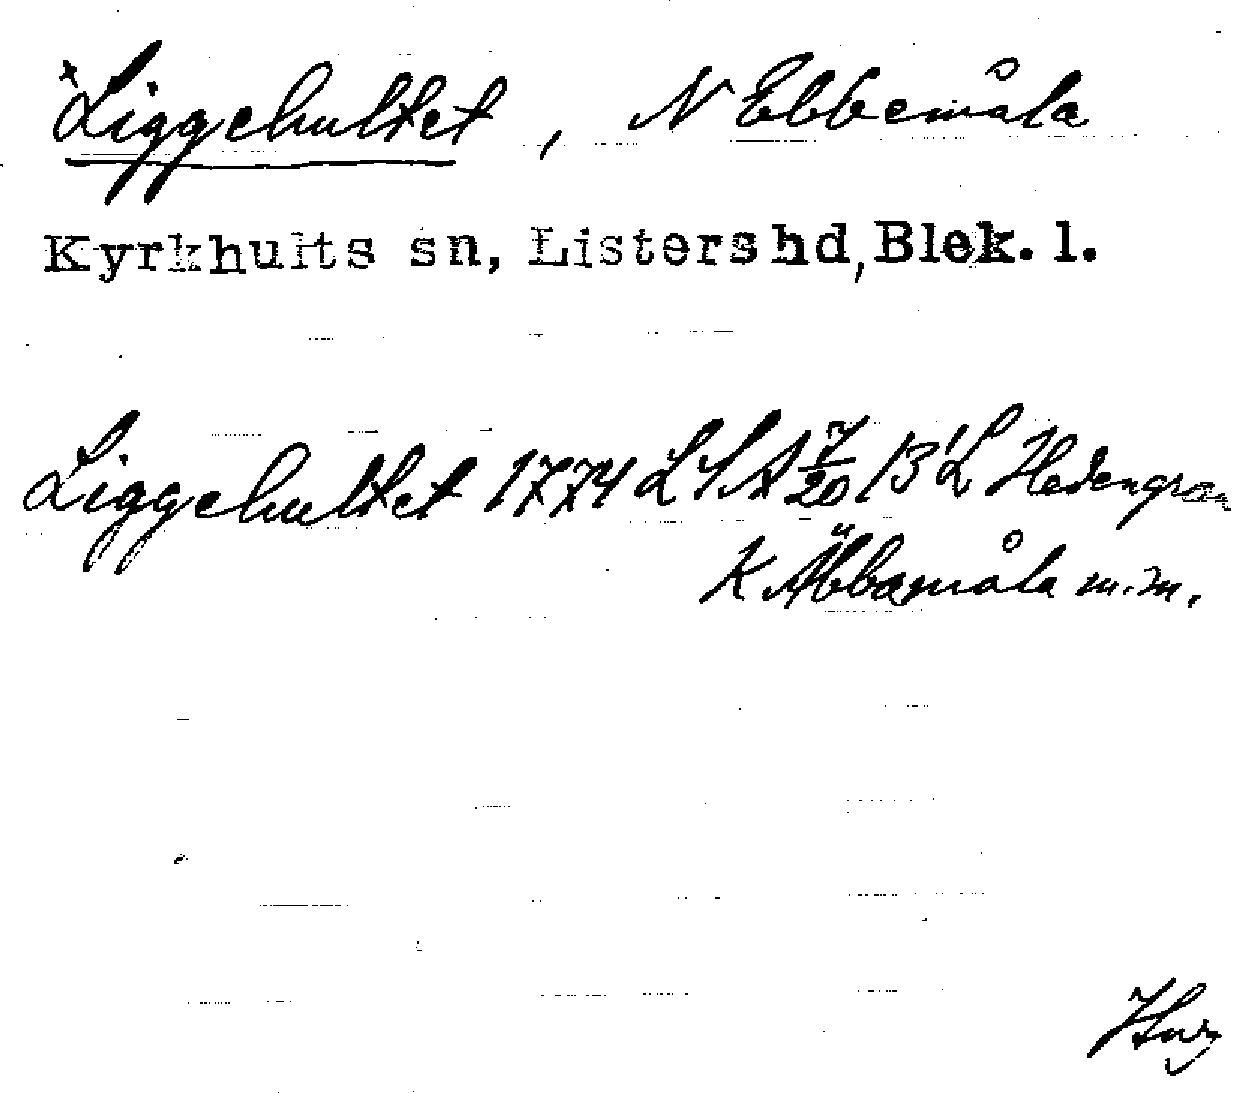 *Liggehultet, N Ebbemåla
Kyrkhults sn, Listers hd, Blek. l.
Liggehultet 1774 LSA 7/20 13 L Hedengran
K Äbbamåla m.m.